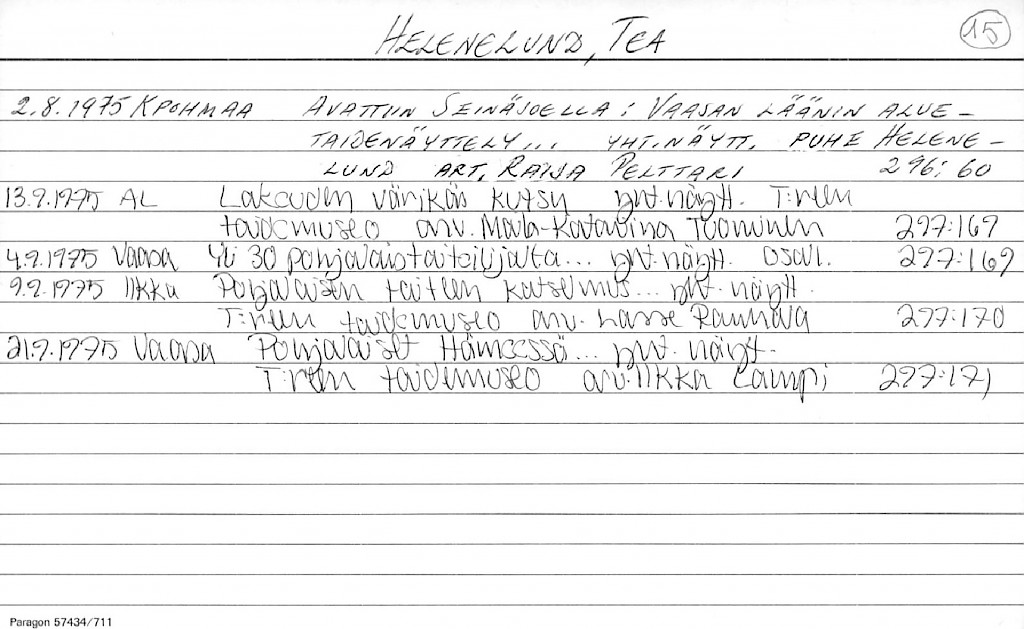 HELENELUND, TEA 15
2.8.1975 KPOHMAA AVATTIIN SEINÄJOELLA : VAASAN LÄÄNIN ALUE-
TAIDENÄYTTELY... YHT.NÄYTT. PUHE HELENE-
LUND ART. RAIJA PELTTARI 296:60
13.9.1975 AL Lakeuden värikäs kutsu yht.näytt. T:reen
taidemuseo arv. Maila-Katariina Tuominen 297:167
4.9.1975 Vaasa Yli 30 pohjalaistaiteilijalta... yht.näytt. osall. 297:169
9.9.1975 Ilkka Pohjalaisen taiteen katselmus... yht.näytt.
T:reen taidemuseo arv. Lasse Rauhala 297:170
21.9.1975 Vaasa Pohjalaiset Hämeessä... yht. näytt.
T:reen taidemuseo arv. Ilkka Lampi 297:171
Paragon 57434/711